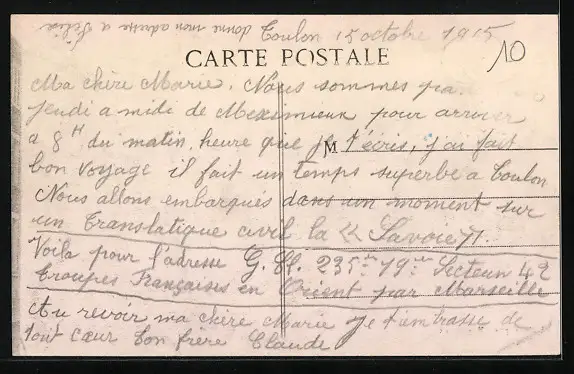 donne mon adresse a Félix
Toulon 15 octobre 1915
10
CARTE POSTALE
Ma chère Marie. Nous sommes
jeudi a midi de Meximieux pour arriver
a 8H du matin, heure que je t'écris, j'ai fait
M
bon voyage il fait un temps superbe a Toulon
Nous allons embarqués dans un moment sur
un Translatique civil la << Savoie >>.
Voila pour l'adresse 235me 19me Secteur 42
troupes Françaises en Orient par Marseille
Au revoir ma chère Marie je t'embrasse de
tout cœur ton frère Claude